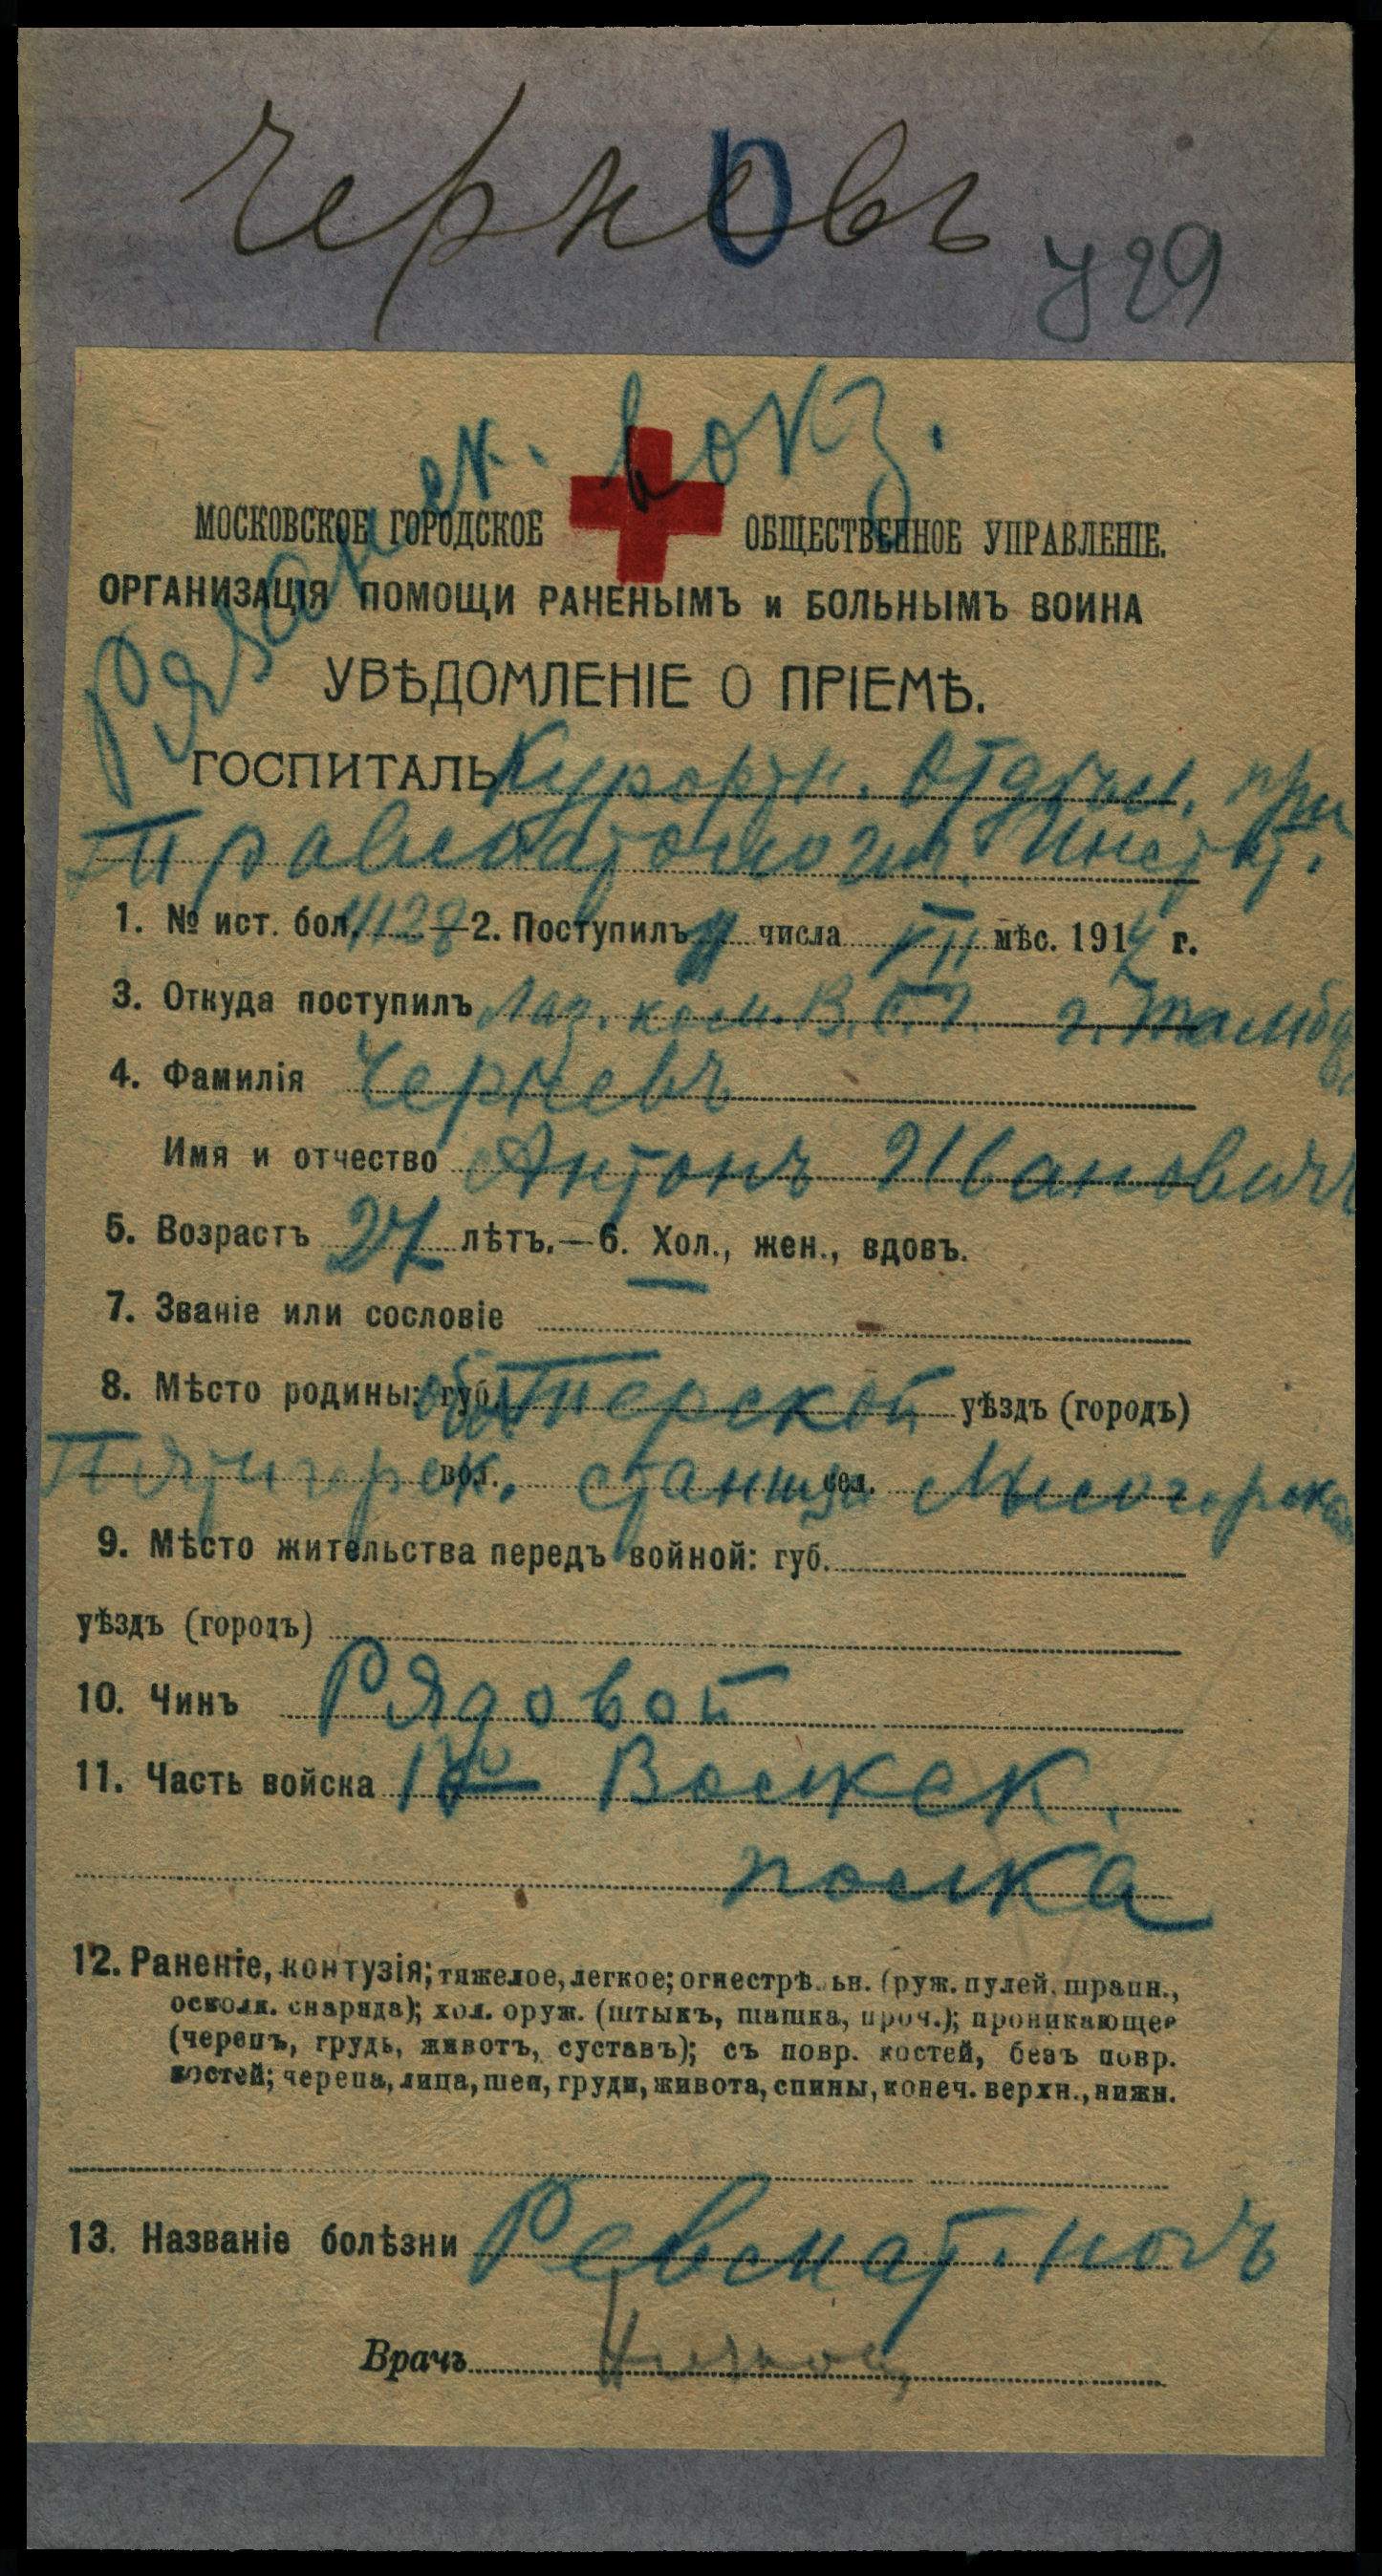 Черновъ
у 29
Рязанск. вокз.
МОСКОВСКОЕ ГОРОДСКОЕ ОБЩЕСТВЕННОЕ УПРАВЛЕНІЕ.
ОРГАНИЗАЦІЯ ПОМОЩИ РАНЕНЫМЪ и БОЛЬНЫМЪ ВОИНА
УВѢДОМЛЕНІЕ О ПРІЕМѢ.
ГОСПИТАЛЬ Курортн. при
Инст.
1. № ист. бол. 1128 — 2. Поступилъ 11 числа XII мѣс. 1914 г.
3. Откуда поступилъ Лаз. ком. г. Тамбов
4. Фамилія Черневъ
Имя и отчество Антонъ Ивановичъ
5. Возрастъ 27 лѣтъ. — 6. Хол., жен., вдовъ.
7. Званіе или сословіе
8. Мѣсто родины: губ. Терской уѣздъ (городъ)
Пятигорск. вол. станица сел.
9. Мѣсто жительства передъ войной: губ.
уѣздъ (городъ)
10. Чинъ Рядовой
11. Часть войска 1го Волжск.
полка
12. Раненіе, контузія; тяжелое, легкое; огнестрѣльн. (руж. пулей, шрапн.,
осколк. снаряда); хол. оруж. (штыкъ, шашка, проч.); проникающее
(черепъ, грудь, животъ, суставъ); съ повр. костей, безъ повр.
костей; черепа, лица, шеи, груди, живота, спины, конеч. верхн., нижн.
13. Названіе болѣзни Ревмат. ногъ
Врачъ